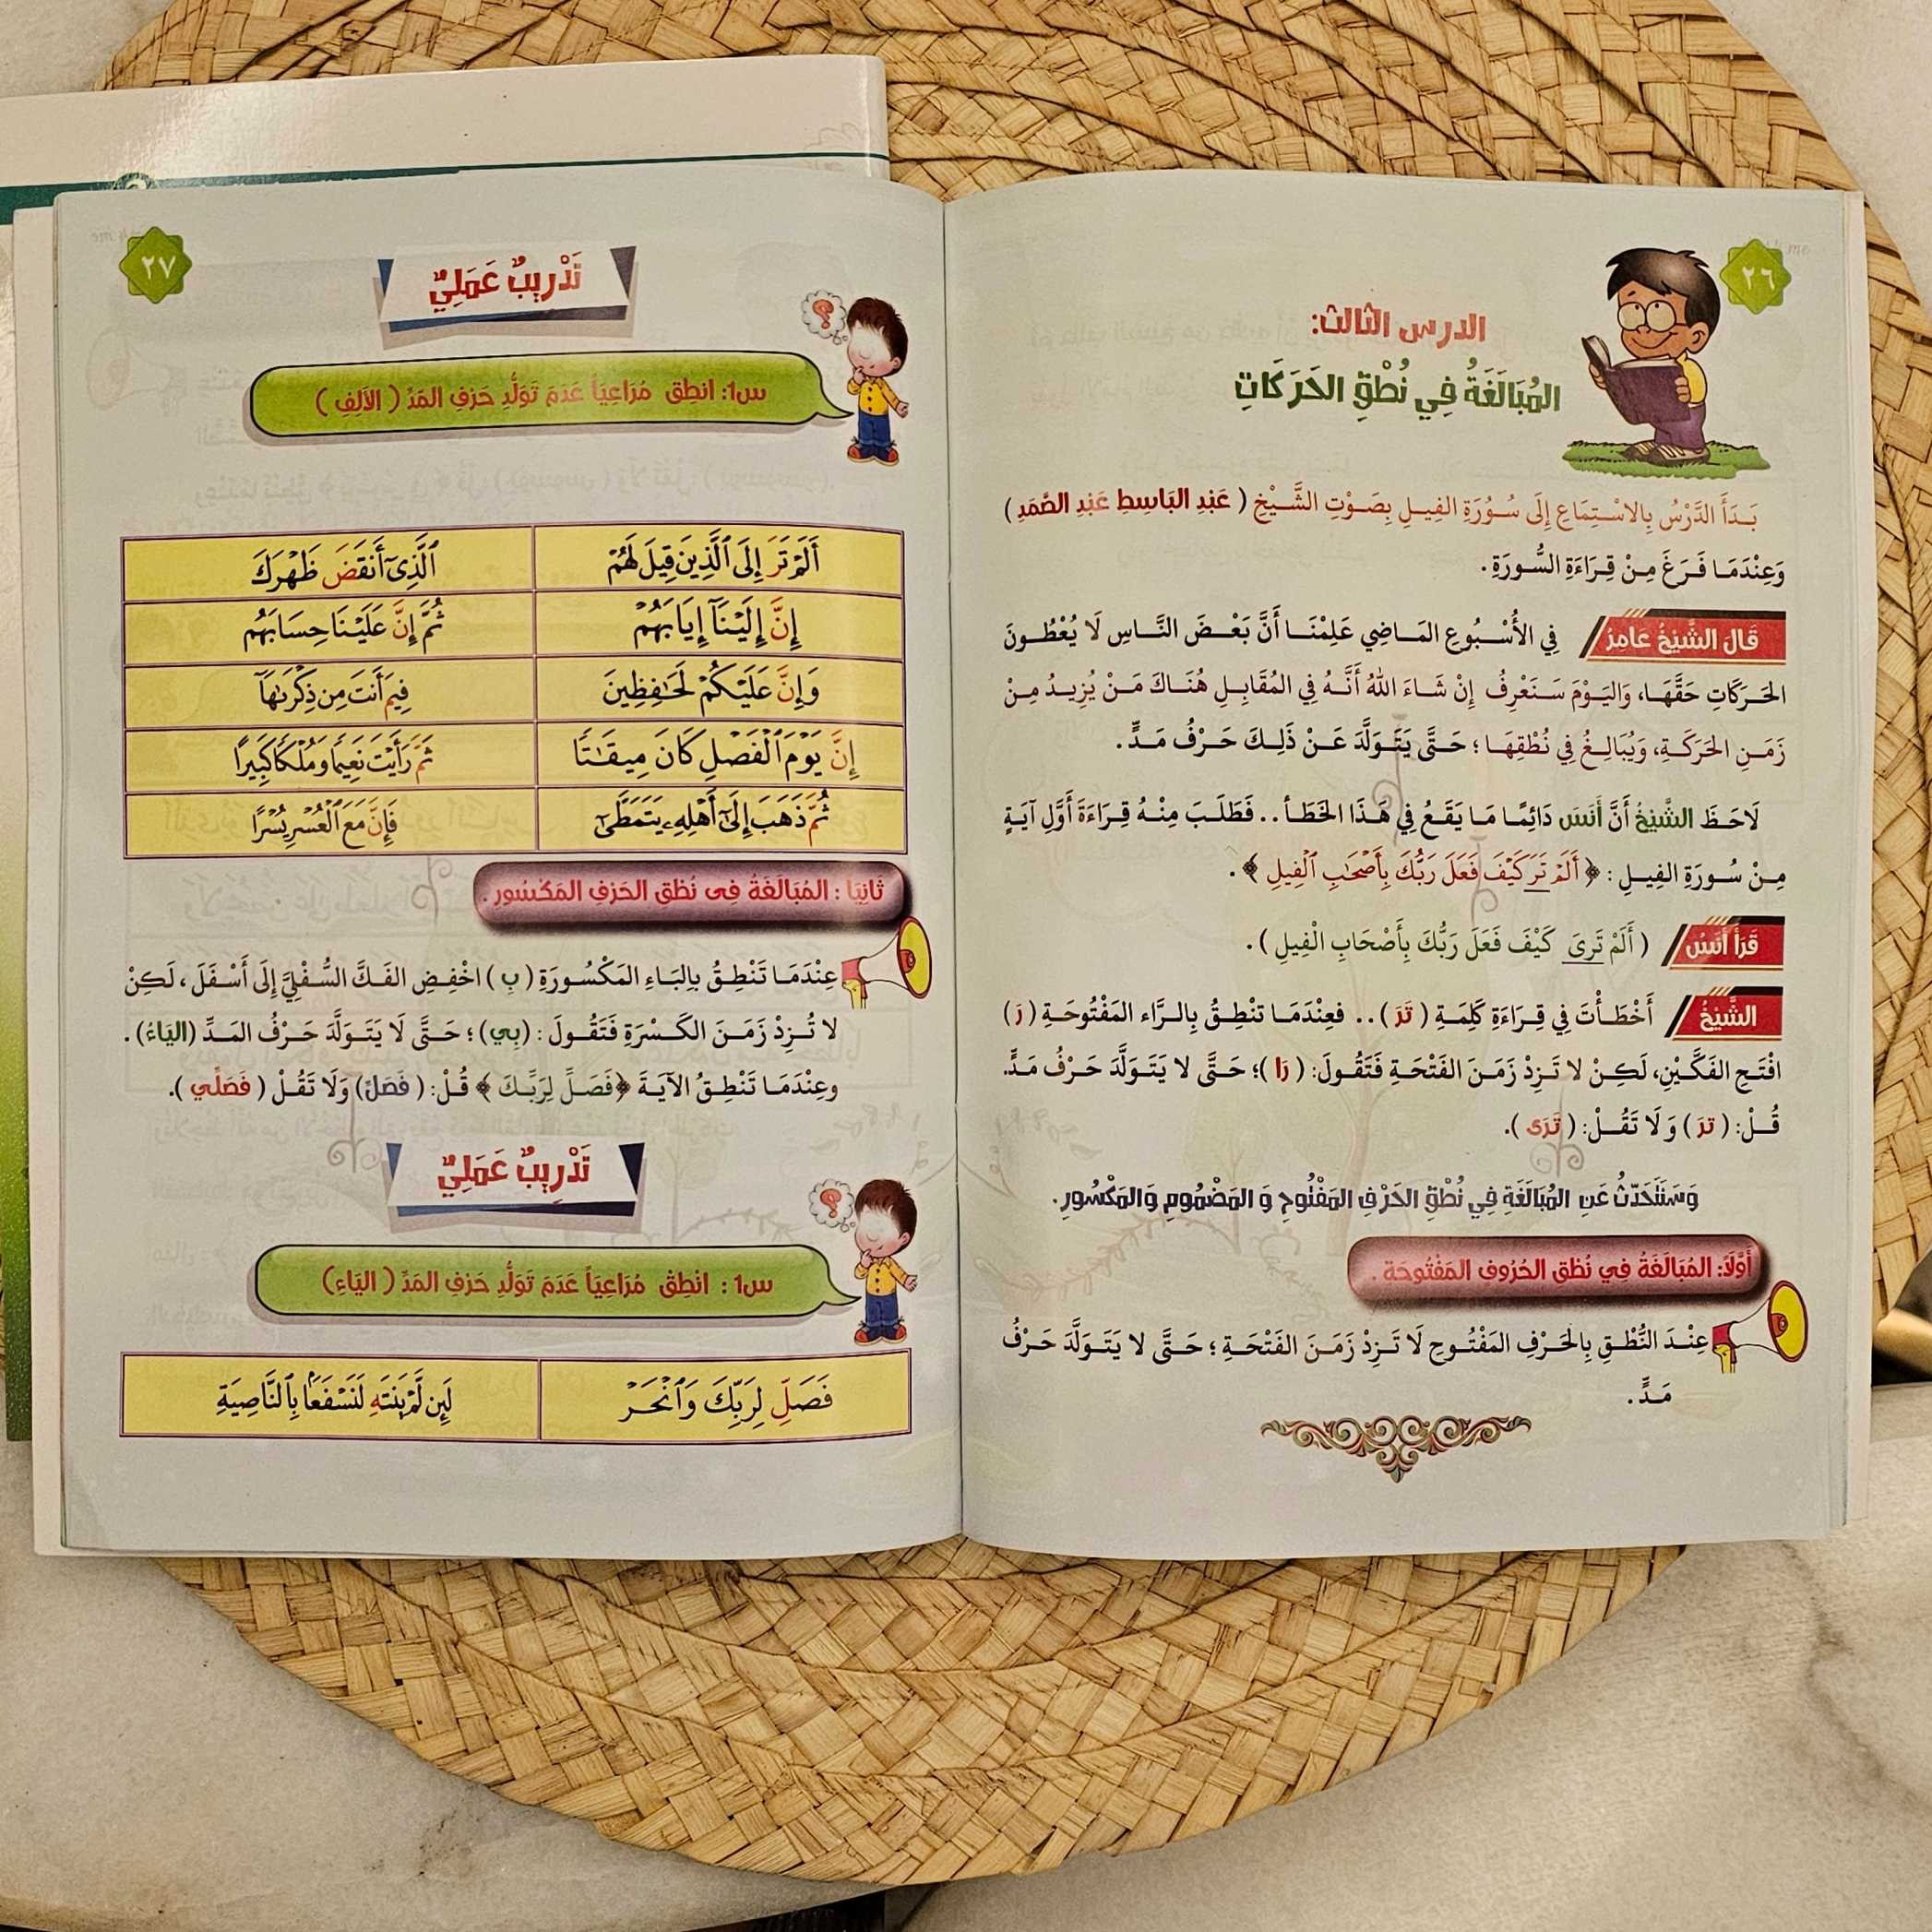 ٢٦
الدرس الثالث:
المُبَالَغَةُ فِي نُطْقِ الحَرَكَاتِ
بَـدَأَ الدَّرْسُ بِالاسْـتِمَاعِ إِلَى سُـورَةِ الفِيـلِ بِصَـوْتِ الشَّـيْخِ ( عَبْدِ البَاسِطِ عَبْدِ الصَّمَدِ )
وَعِنْدَمَـا فَـرَغَ مِـنْ قِـرَاءَةِ السُّـورَةِ.
قَالَ الشَّيْخُ عَامِرُ فِي الأُسْـبُوعِ المَـاضِي عَلِمْنَـا أَنَّ بَعْـضَ النَّـاسِ لَا يُعْطُـونَ
الحَـرَكَاتِ حَقَّهَـا، وَاليَـوْمَ سَـنَعْرِفُ إِنْ شَـاءَ اللهُ أَنَّـهُ فِي المُقَابِـلِ هُنَـاكَ مَـنْ يُزِيـدُ مِـنْ
زَمَـنِ الحَرَكَـةِ، وَيُبَالِـغُ فِي نُطْقِهَـا؛ حَتَّـى يَتَـوَلَّدَ عَـنْ ذَلِـكَ حَـرْفُ مَـدٍّ.
لَاحَـظَ الشَّيْخُ أَنَّ أَنَسَ دَائِمًـا مَـا يَقَـعُ فِي هَـذَا الخَطَـأ.. فَطَلَـبَ مِنْـهُ قِـرَاءَةَ أَوَّلِ آيَـةٍ
مِـنْ سُـورَةِ الفِيـلِ: ﴿ أَلَمْ تَرَ كَيْفَ فَعَلَ رَبُّكَ بِأَصْحَٰبِ ٱلْفِيلِ ﴾.
قَرَأَ أَنَسُ ( أَلَمْ تَرىَ كَيْفَ فَعَلَ رَبُّكَ بِأَصْحَابِ الْفِيلِ ).
الشَّيْخُ أَخْطَـأْتَ فِي قِـرَاءَةِ كَلِمَـةِ ( تَرَ ).. فعِنْدَمَـا تنْطِـقُ بِالـرَّاء المَفْتُوحَـةِ ( رَ )
افْتَـحِ الفَكَّـيْنِ، لَكِـنْ لا تَـزِدْ زَمَـنَ الفَتْحَـةِ فَتَقُـولَ: ( رَا )؛ حَتَّـى لا يَتَوَلَّـدَ حَـرْفُ مَـدٍّ.
قُـلْ: ( تَرَ ) وَ لَا تَقُـلْ: ( تَرَى ).
وَسَنَتَحَدَّثُ عَنِ المُبَالَغَةِ فِي نُطْقِ الحَرْفِ المَفْتُوحِ وَ المَضْمُومِ وَالمَكْسُورِ.
أَوَّلاً: المُبَالَغَةُ فِي نُطْقِ الحُرُوفِ المَفْتُوحَةِ .
عِنْـدَ النُّطْـقِ بِالحَـرْفِ المَفْتُـوحِ لَا تَـزِدْ زَمَـنَ الفَتْحَـةِ؛ حَتَّـى لا يَتَـوَلَّدَ حَـرْفُ
مَـدٍّ.
٢٧
تَدْرِيبٌ عَمَلِيٌّ
س1: انطِق مُرَاعِيَاً عَدَمَ تَوَلُّدِ حَرْفِ المَدِّ ( الأَلِفِ )
أَلَمْ تَرَ إِلَى ٱلَّذِينَ قِيلَ لَهُمْ
ٱلَّذِىٓ أَنقَضَ ظَهْرَكَ
إِنَّ إِلَيْنَآ إِيَابَهُمْ
ثُمَّ إِنَّ عَلَيْنَا حِسَابَهُم
وَإِنَّ عَلَيْكُمْ لَحَٰفِظِينَ
فِيمَ أَنتَ مِن ذِكْرَىٰهَآ
إِنَّ يَوْمَ ٱلْفَصْلِ كَانَ مِيقَٰتًا
ثَمَّ رَأَيْتَ نَعِيمًا وَمُلْكًا كَبِيرًا
ثُمَّ ذَهَبَ إِلَىٰٓ أَهْلِهِۦ يَتَمَطَّىٰٓ
فَإِنَّ مَعَ ٱلْعُسْرِ يُسْرًا
ثَانِيًا : المُبَالَغَةُ فِى نُطْقِ الحَرْفِ المَكْسُورِ .
عِنْدَمَـا تَنْطِـقُ بِالبَـاءِ المَكْسُـورَةِ ( بِ ) اخْفِـضِ الفَـكَّ السُّـفْلِيَّ إِلَى أَسْـفَلَ، لَكِـنْ
لا تُـزِدْ زَمَـنَ الكَـسْرَةِ فَتَقُـولَ : (بِي)؛ حَتَّـى لَا يَتَـوَلَّدَ حَـرْفُ المَـدِّ (اليَاءُ) .
وعِنْدَمَـا تَنْطِـقُ الآيَـةَ ﴿فَصَـلِّ لِرَبِّـكَ ﴾ قُـلْ: ( فَصَلِّ) وَلَا تَقُـلْ ( فَصَلِّي ).
تَدْرِيبٌ عَمَلِيٌّ
س1 : انْطِقْ مُرَاعِيَاً عَدَمَ تَوَلُّدِ حَرْفِ المَدِّ ( اليَاءِ)
فَصَلِّ لِرَبِّكَ وَٱنْحَرْ
لَئِن لَّمْ يَنتَهِ لَنَسْفَعًۢا بِٱلنَّاصِيَةِ